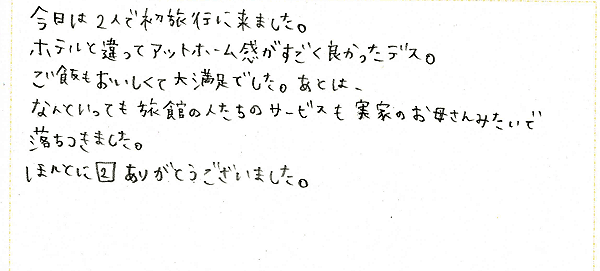 今日は2人で初旅行に来ました。
ホテルと違ってアットホーム感がすごく良かったデス。
ご飯もおいしくて大満足でした。あとは、
なんといっても旅館の人たちのサービスも実家のお母さんみたいで
落ちつきました。
ほんとに2ありがとうございました。